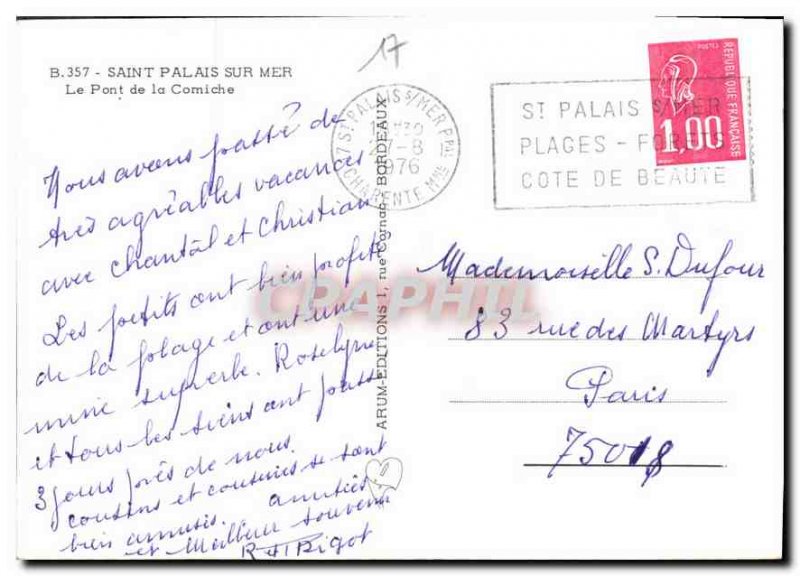 B.357 - SAINT PALAIS SUR MER
Le Pont de la Corniche
17
17 ST PALAIS S/MER PPAL
27-8
1976
CHARENTE MME
ST PALAIS S/MER
PLAGES - FORETS
COTE DE BEAUTE
POSTES
REPUBLIQUE FRANÇAISE
1,00
Nous avons passé de
très agréables vacances
avec Chantal et Christian
Les petits ont bien profité
de la plage et ont une
mine superbe. Roselyne
et tous les siens ont passé
3 jours près de nous.
cousins et cousines se sont
bien amusés. amitiés
et Meilleur souvenir
Bigot
ARUM-EDITIONS 1, rue Cornac, BORDEAUX
CPAPHIL
Mademoiselle S. Dufour
83 rue des Martyrs
Paris
75018